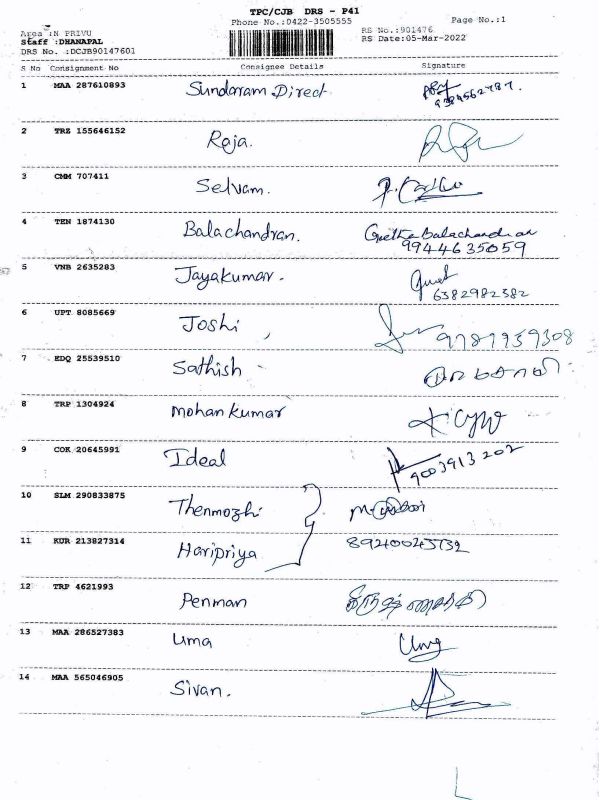 TPC/CJB DRS - P41
Phone No.:0422-3505555
Page No.:1
Area :N PRIVU
RS No.:901476
Staff :DHANAPAL
RS Date:05-Mar-2022
DRS No. :DCJB90147601
S No Consignment No Consignee Details Signature
1 MAA 287610893 Sundaram Direct
2 TRZ 155646152 Raja.
3 CMM 707411 Selvam.
4 TEN 1874130 Balachandran. Geetha Balachandran
9944635059
5 VNB 2635283 Jayakumar.
6382982382
6 UPT 8085669 Joshi 9787959308
7 EDQ 25539510 Sathish
8 TRP 1304924 Mohan kumar
9 COK 20645991 Ideal 9003913202
10 SLM 290833875 Thenmozhi
11 KUR 213827314 Haripriya
12 TRP 4621993 Penman
13 MAA 286527383 Uma
14 MAA 565046905 Sivan.